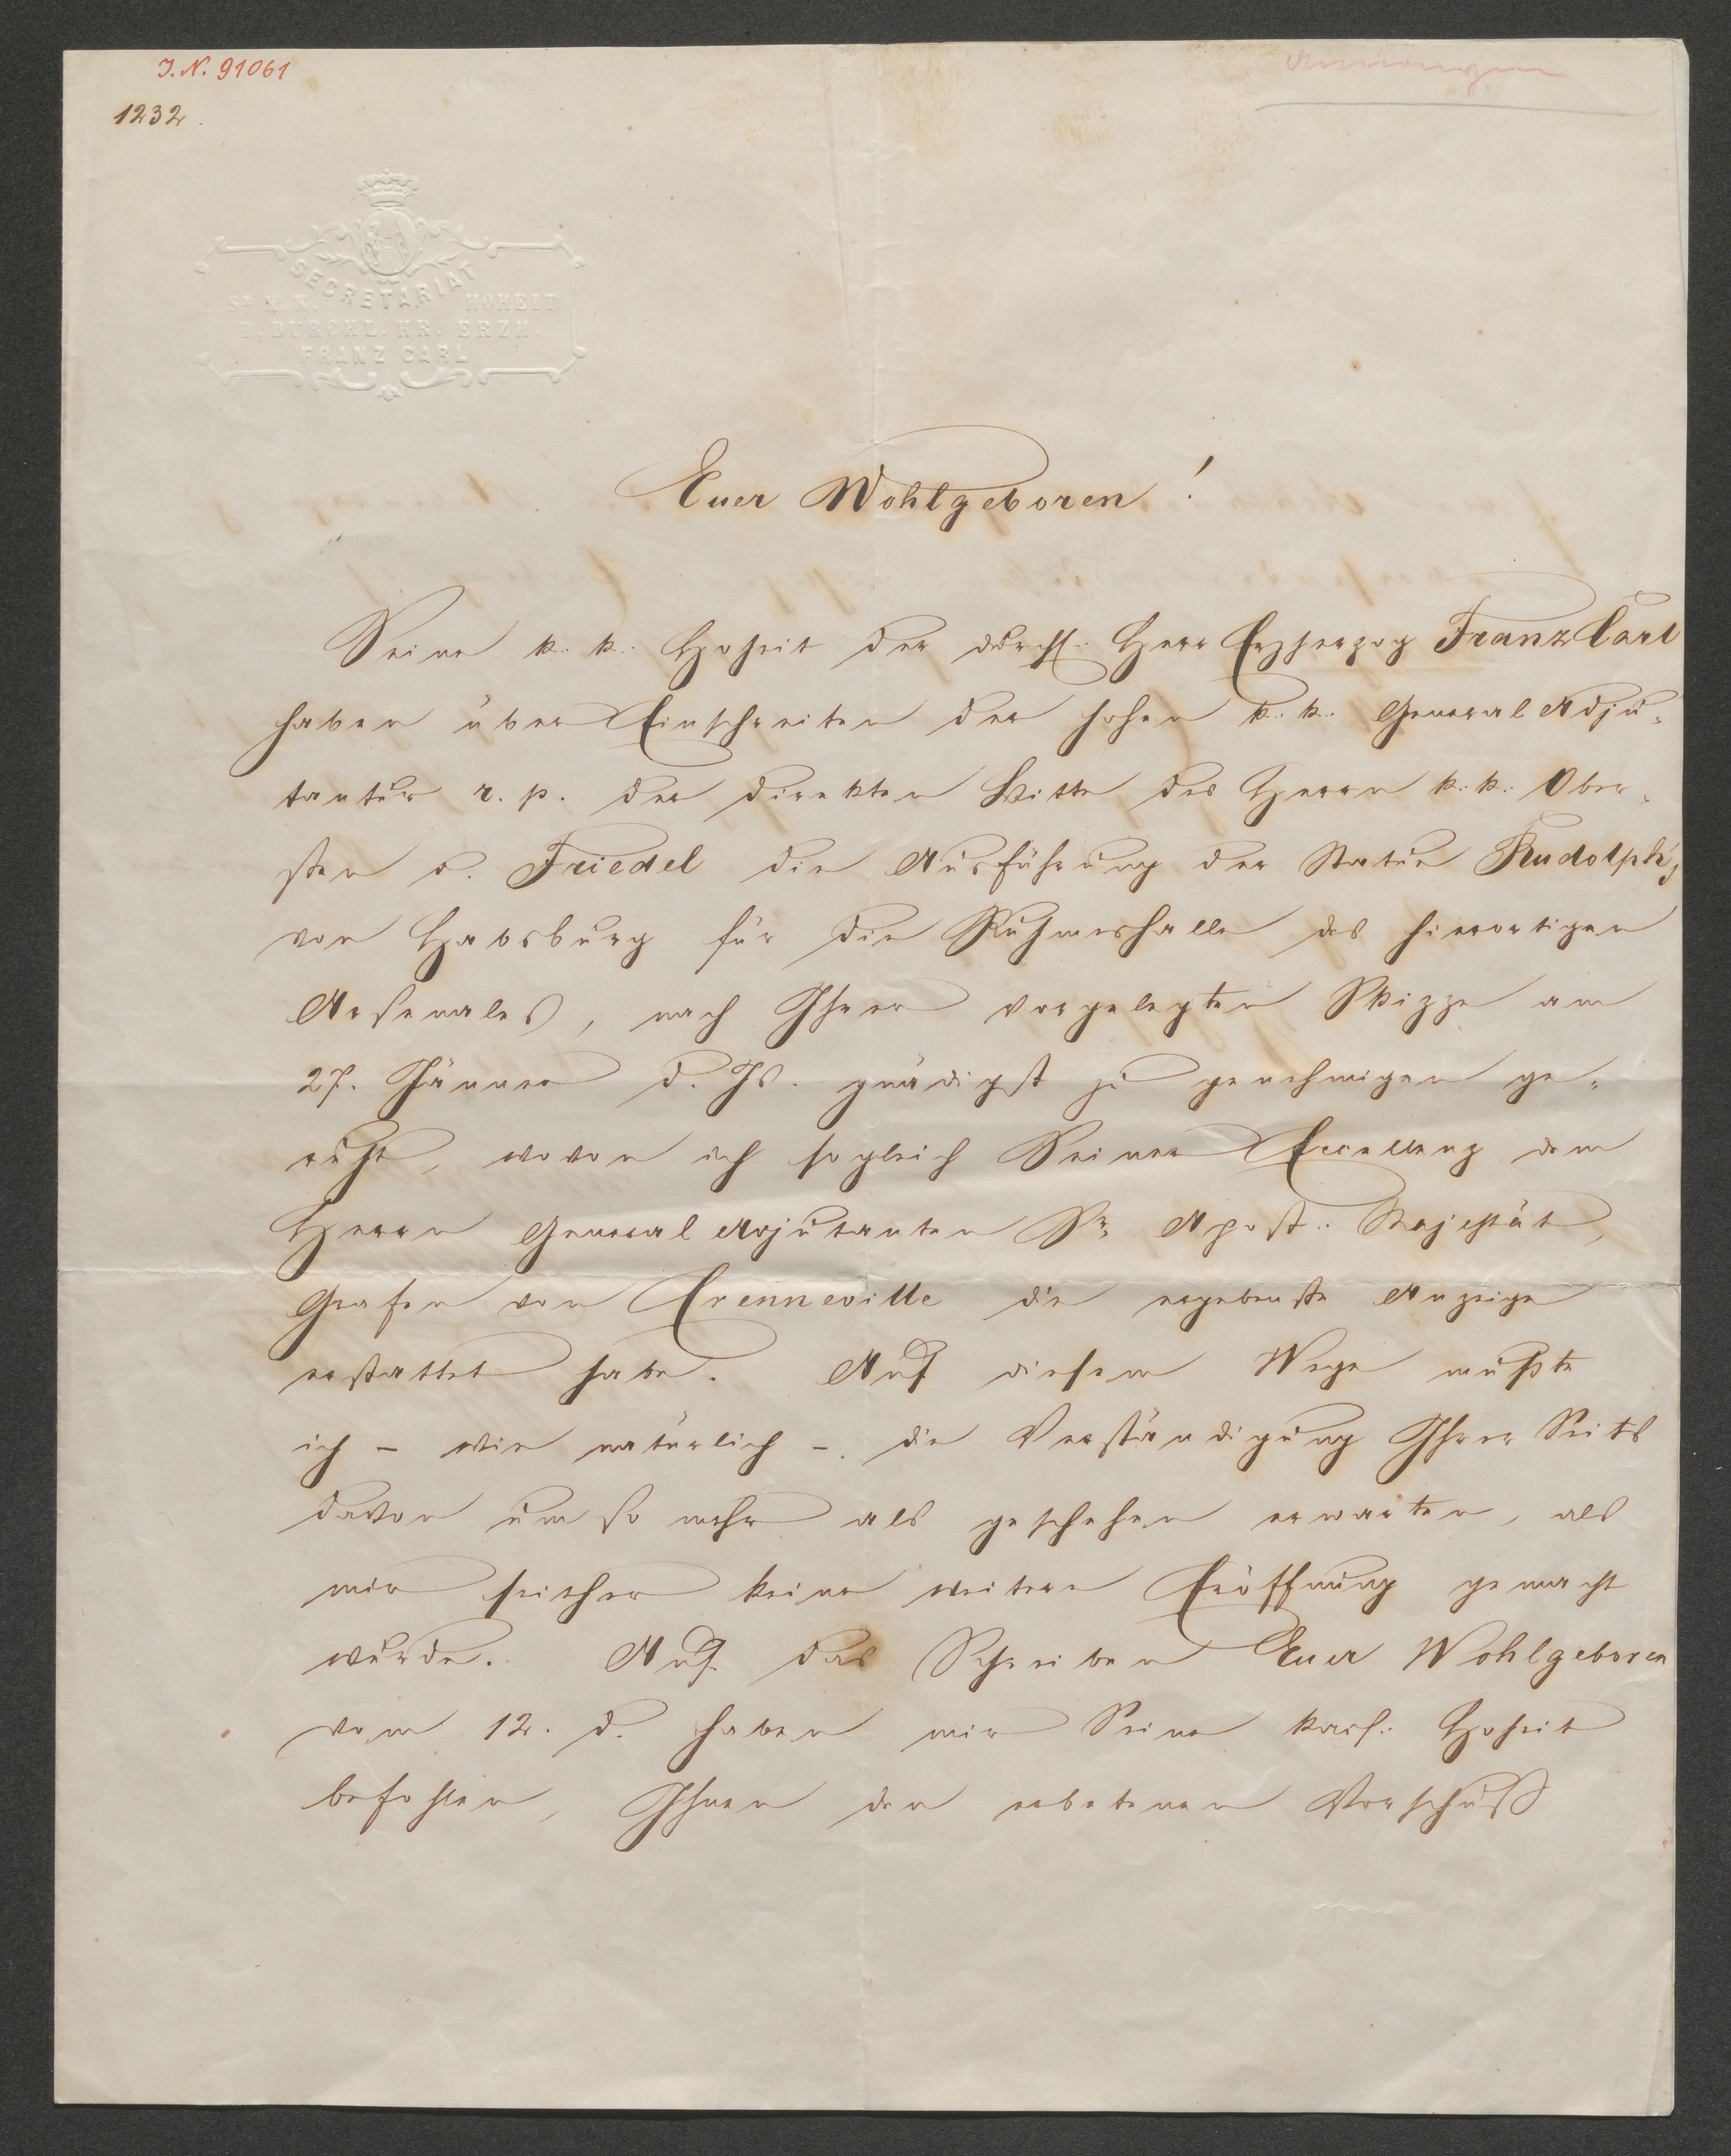 J. N. 91061
1232.
SECRETARIAT
Sr K. K. HOHEIT
D. DURCHL. HR. ERZH.
FRANZ CARL
Euer Wohlgeboren!
Seine k. k. Hoheit der durchl. Herr Erzherzog Franz Carl
haben über Einschreiten der hohen k. k. General Adju-
tantur r. p. der direkten Bitte des Herrn k. k. Ober-
sten v. Friedel die Ausführung der Statue Rudolph's
von Habsburg für die Ruhmeshalle des hierortigen
Arsenales, nach Ihrer vorgelegten Skizze am
27. Jänner d. Js. gnädigst zu genehmigen ge-
ruht, wovon ich sogleich Seiner Excellenz dem
Herrn General Adjutanten Sr Apost. Majestät,
Grafen von Crenneville die ergebenste Anzeige
erstattet habe. Auf diesem Wege mußte
ich – wie natürlich –. die Verständigung Ihrer Seits
davon um so mehr als geschehen erwarten, als
mir seither keine weitere Eröffnung gemacht
wurde. Auf das Schreiben Euer Wohlgeboren
vom 12. d. haben mir Seine kais. Hoheit
befohlen, Ihnen den erbetenen Vorschuß